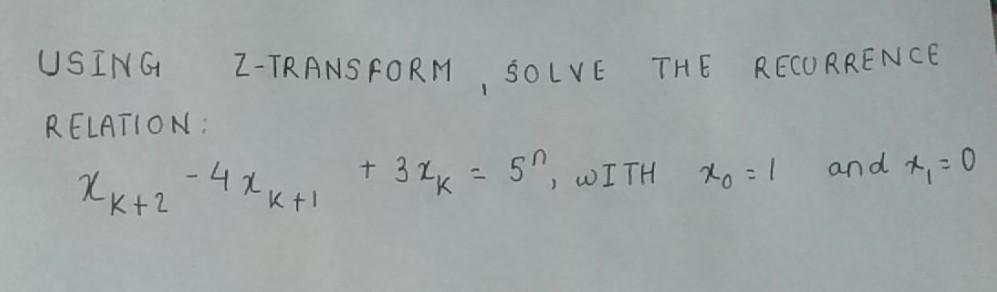 USING Z-TRANSFORM, SOLVE THE RECURRENCE
RELATION:
x_{K+2} - 4x_{K+1} + 3x_K = 5^n, WITH x_0 = 1 and x_1 = 0